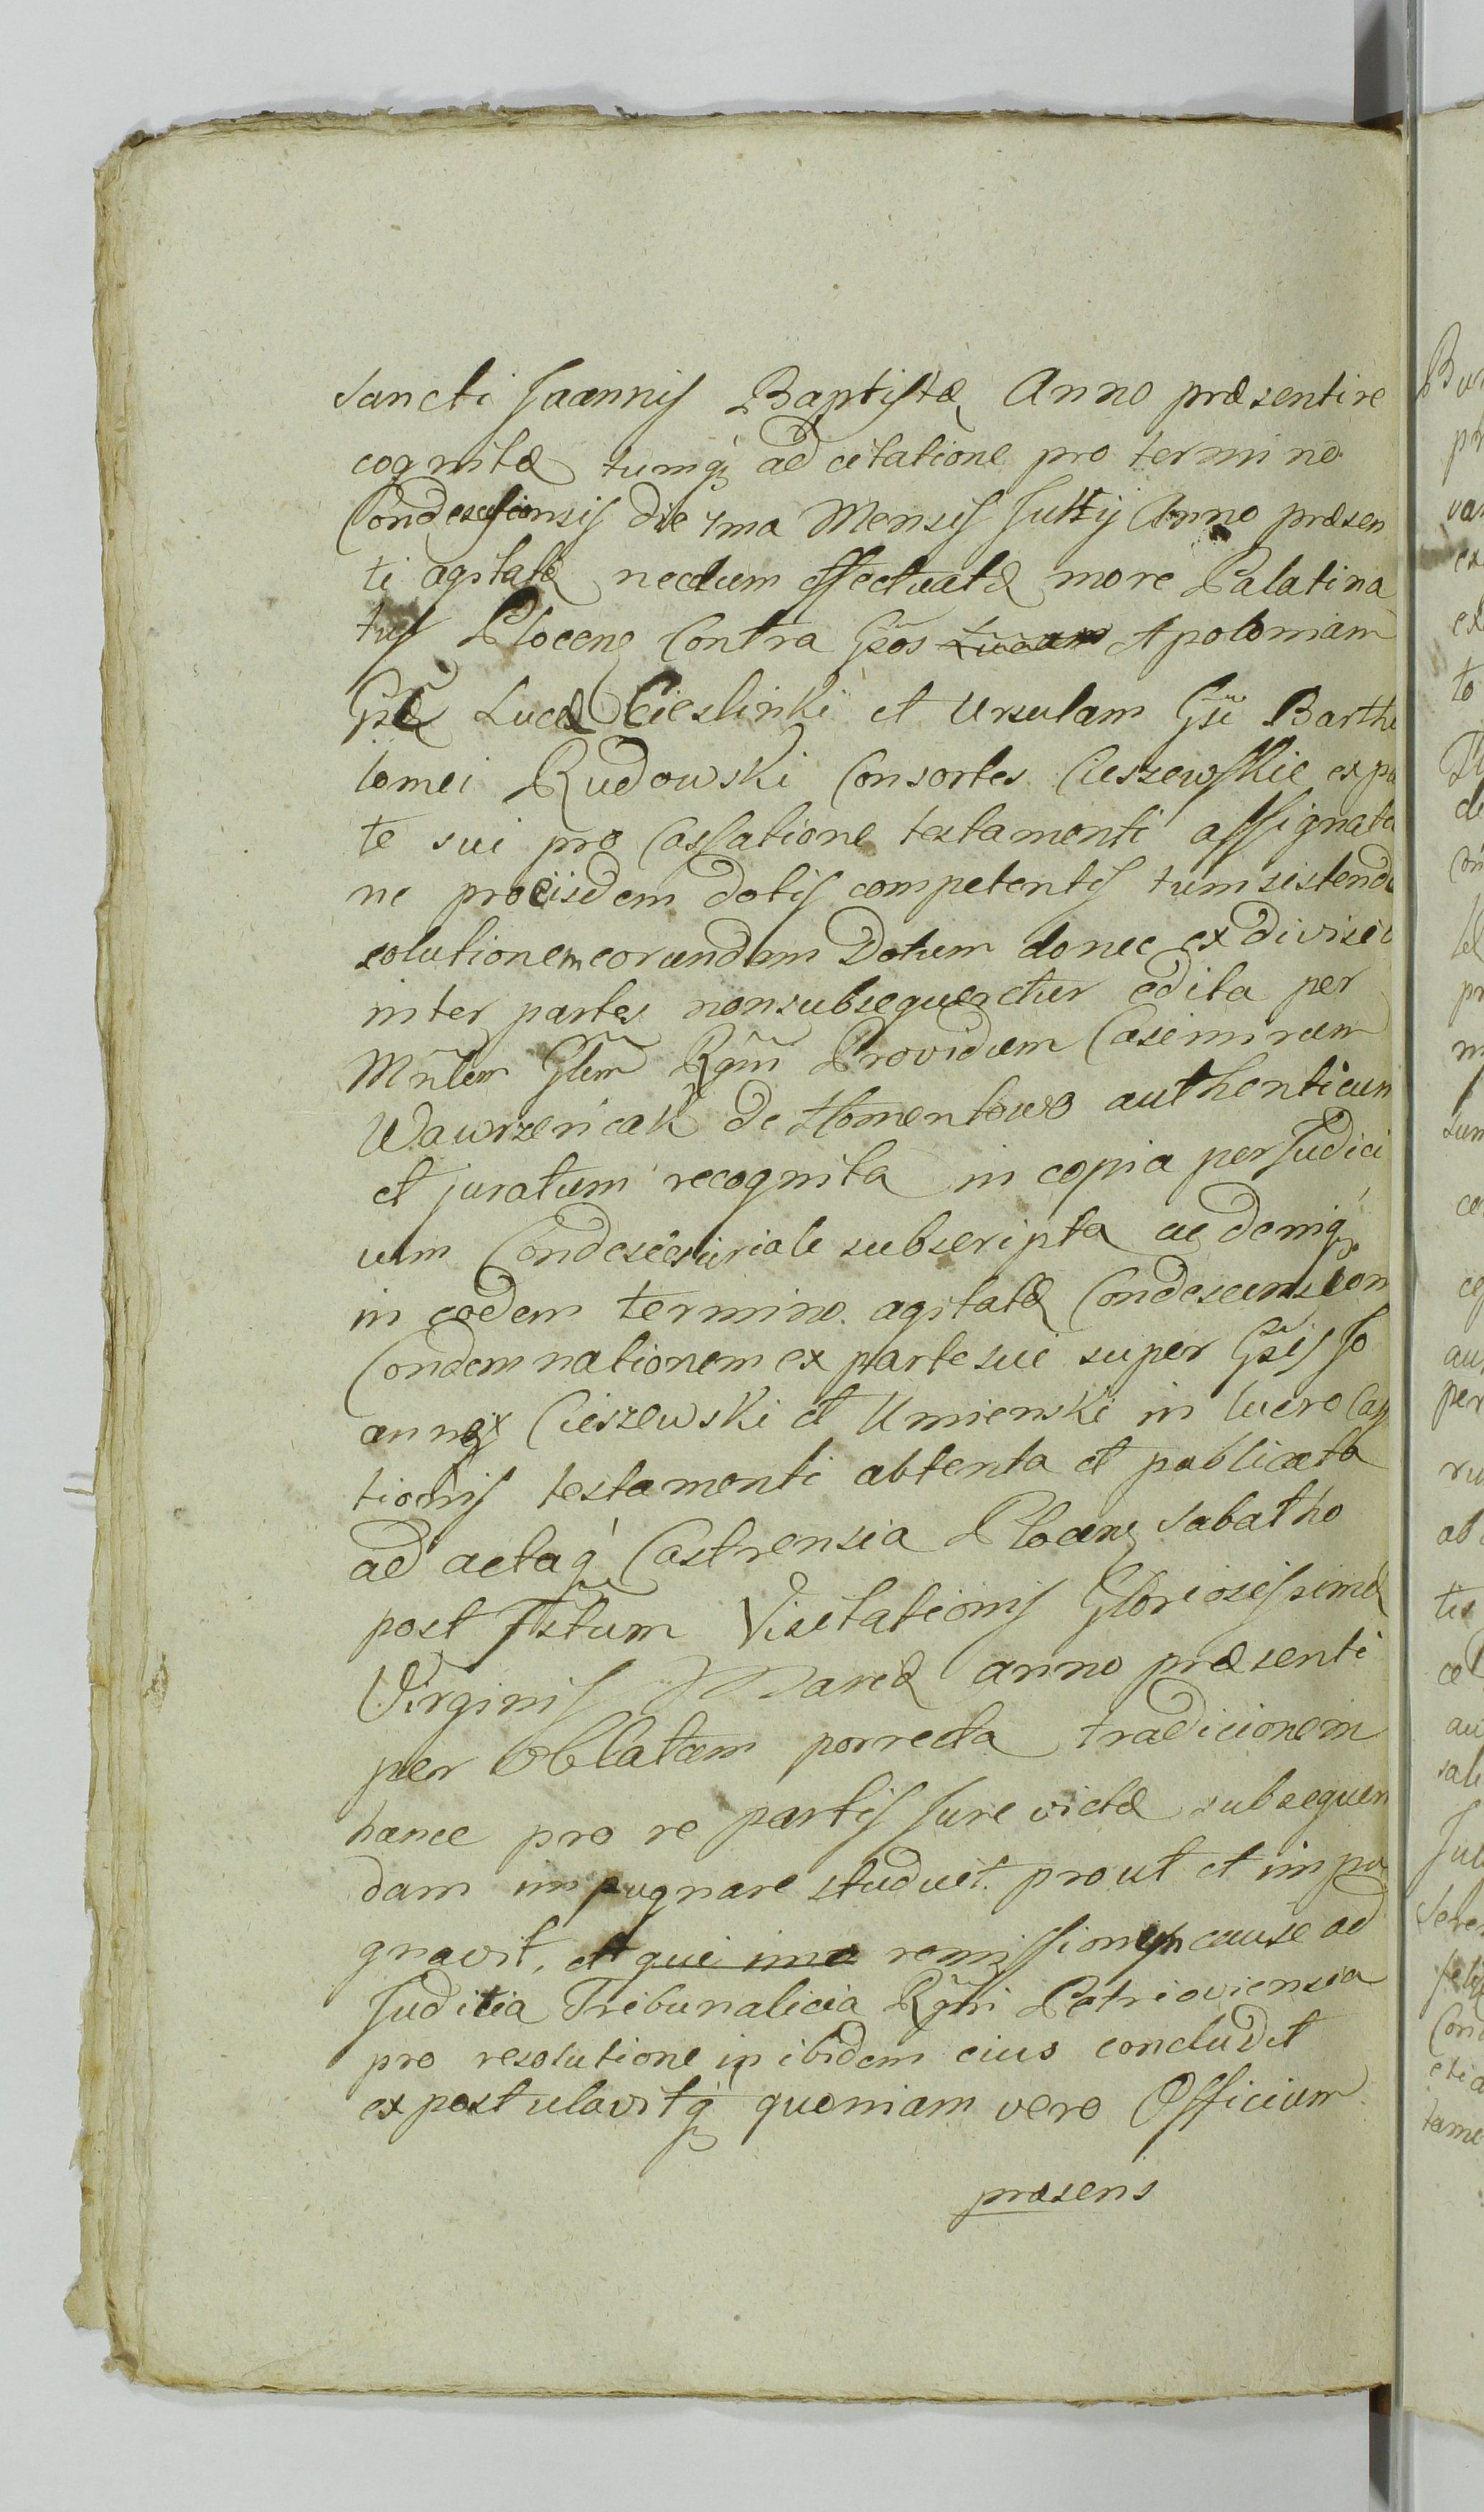 Sancti Joannis Baptistæ Anno præsenti re
cognitæ tumq; ad citatione pro termino
Condescensionis die 1ma Mensis Julij Anno præsen
ti agitatæ necdum effectuatæ more Palatina
tus Plocens Contra Gsos Apoloniam
Gsi Lucæ Cieslinski et Ursulam Gsi Bartho
lomei Rudowski Consortes Cieszewskie ex par
te sui pro Cassatione testamenti assignatio
ne pro eisdem dotis competentis tum sistendo
solutionem eorundem Dotum donec ex divisio
inter partes non subsequeretur edita per
Mnlem Glem Rgni Providum Casimirum
Wawrzeńcak de Homentowo authenticum
et juratum recognita in copia per Judici
um Condescensuriale subscripta ac demiq;
in eodem termino agitatæ Condescension
Condemnationem ex parte sui super Gsis Jo
anne Cieszewski et Umienski in lucro Cassa
tionis testamenti obtenta et publicata
ad actaq; Castrensia Plocens Sabatho
post Fstum Visitationis Gloriosissimæ
Virginis Mariæ anno præsenti
per Oblatam porrecta tradicionem
hance pro re partis Jure victæ subsequen
dam impugnare studuit prout et impu
gnavit, et remissionem cause ad
Juditia Tribunalicia Rgni Petricoviensia
pro resolutione in ibidem eius concludit
expostulavitq; quoniam vero Officium
præsens